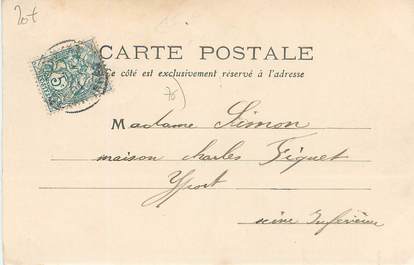 CARTE POSTALE
Ce côté est exclusivement réservé à l'adresse
Madame Simon
maison Charles Fiquet
Yport
Seine Inférieure
5